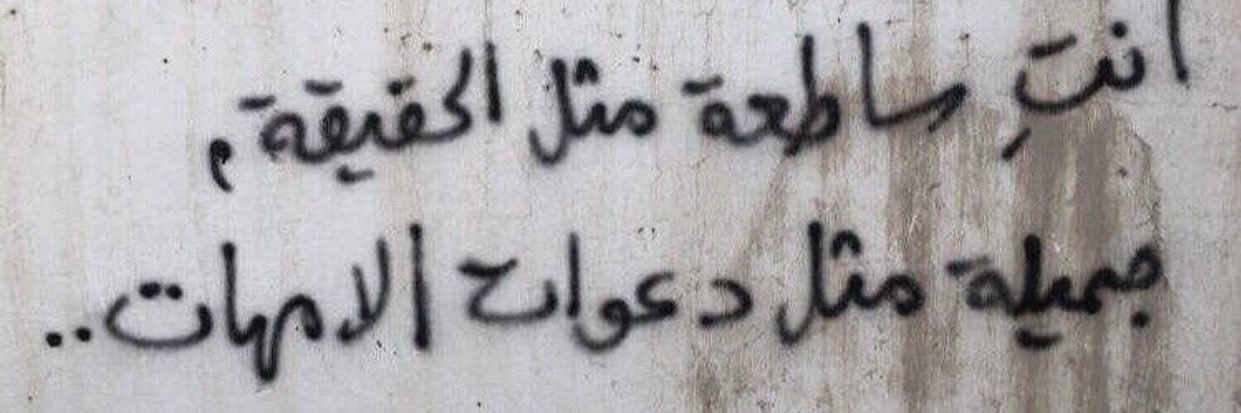 انتِ ساطعة مثل الحقيقة,
جميلة مثل دعوات الامهات..